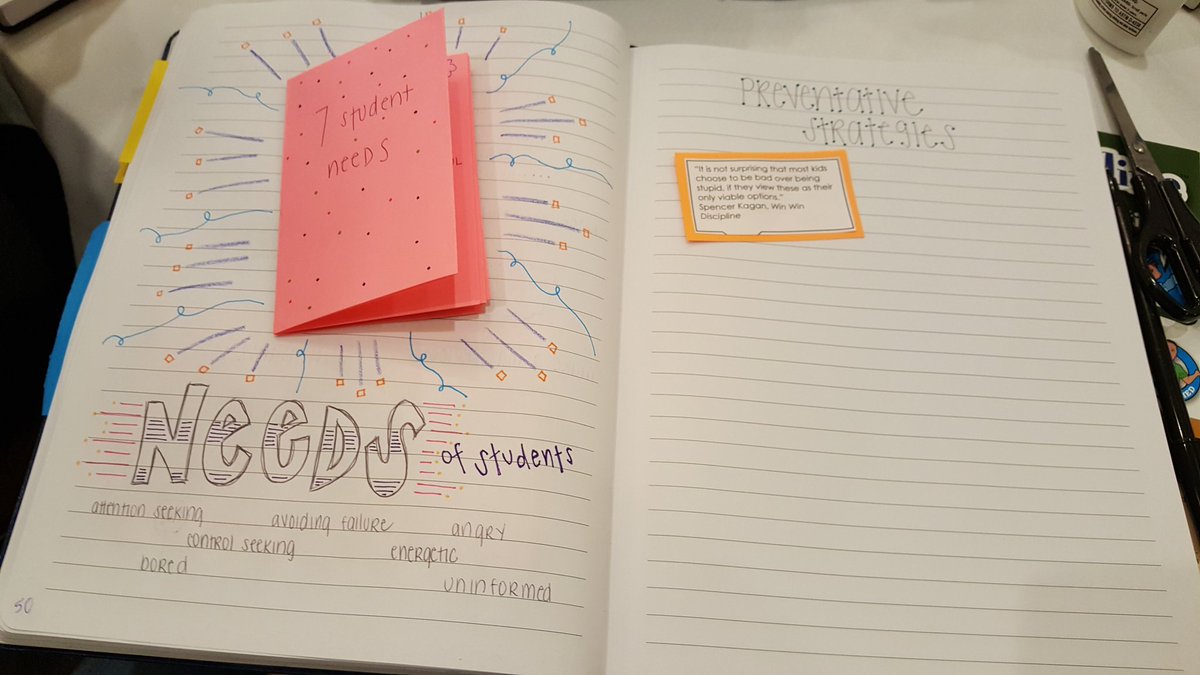 7 student
needs
NEEDS
of students
attention seeking avoiding failure angry
control seeking energetic
bored
uninformed
50
Preventative
Strategies
"It is not surprising that most kids
choose to be bad over being
stupid, if they view these as their
only viable options."
Spencer Kagan, Win Win
Discipline